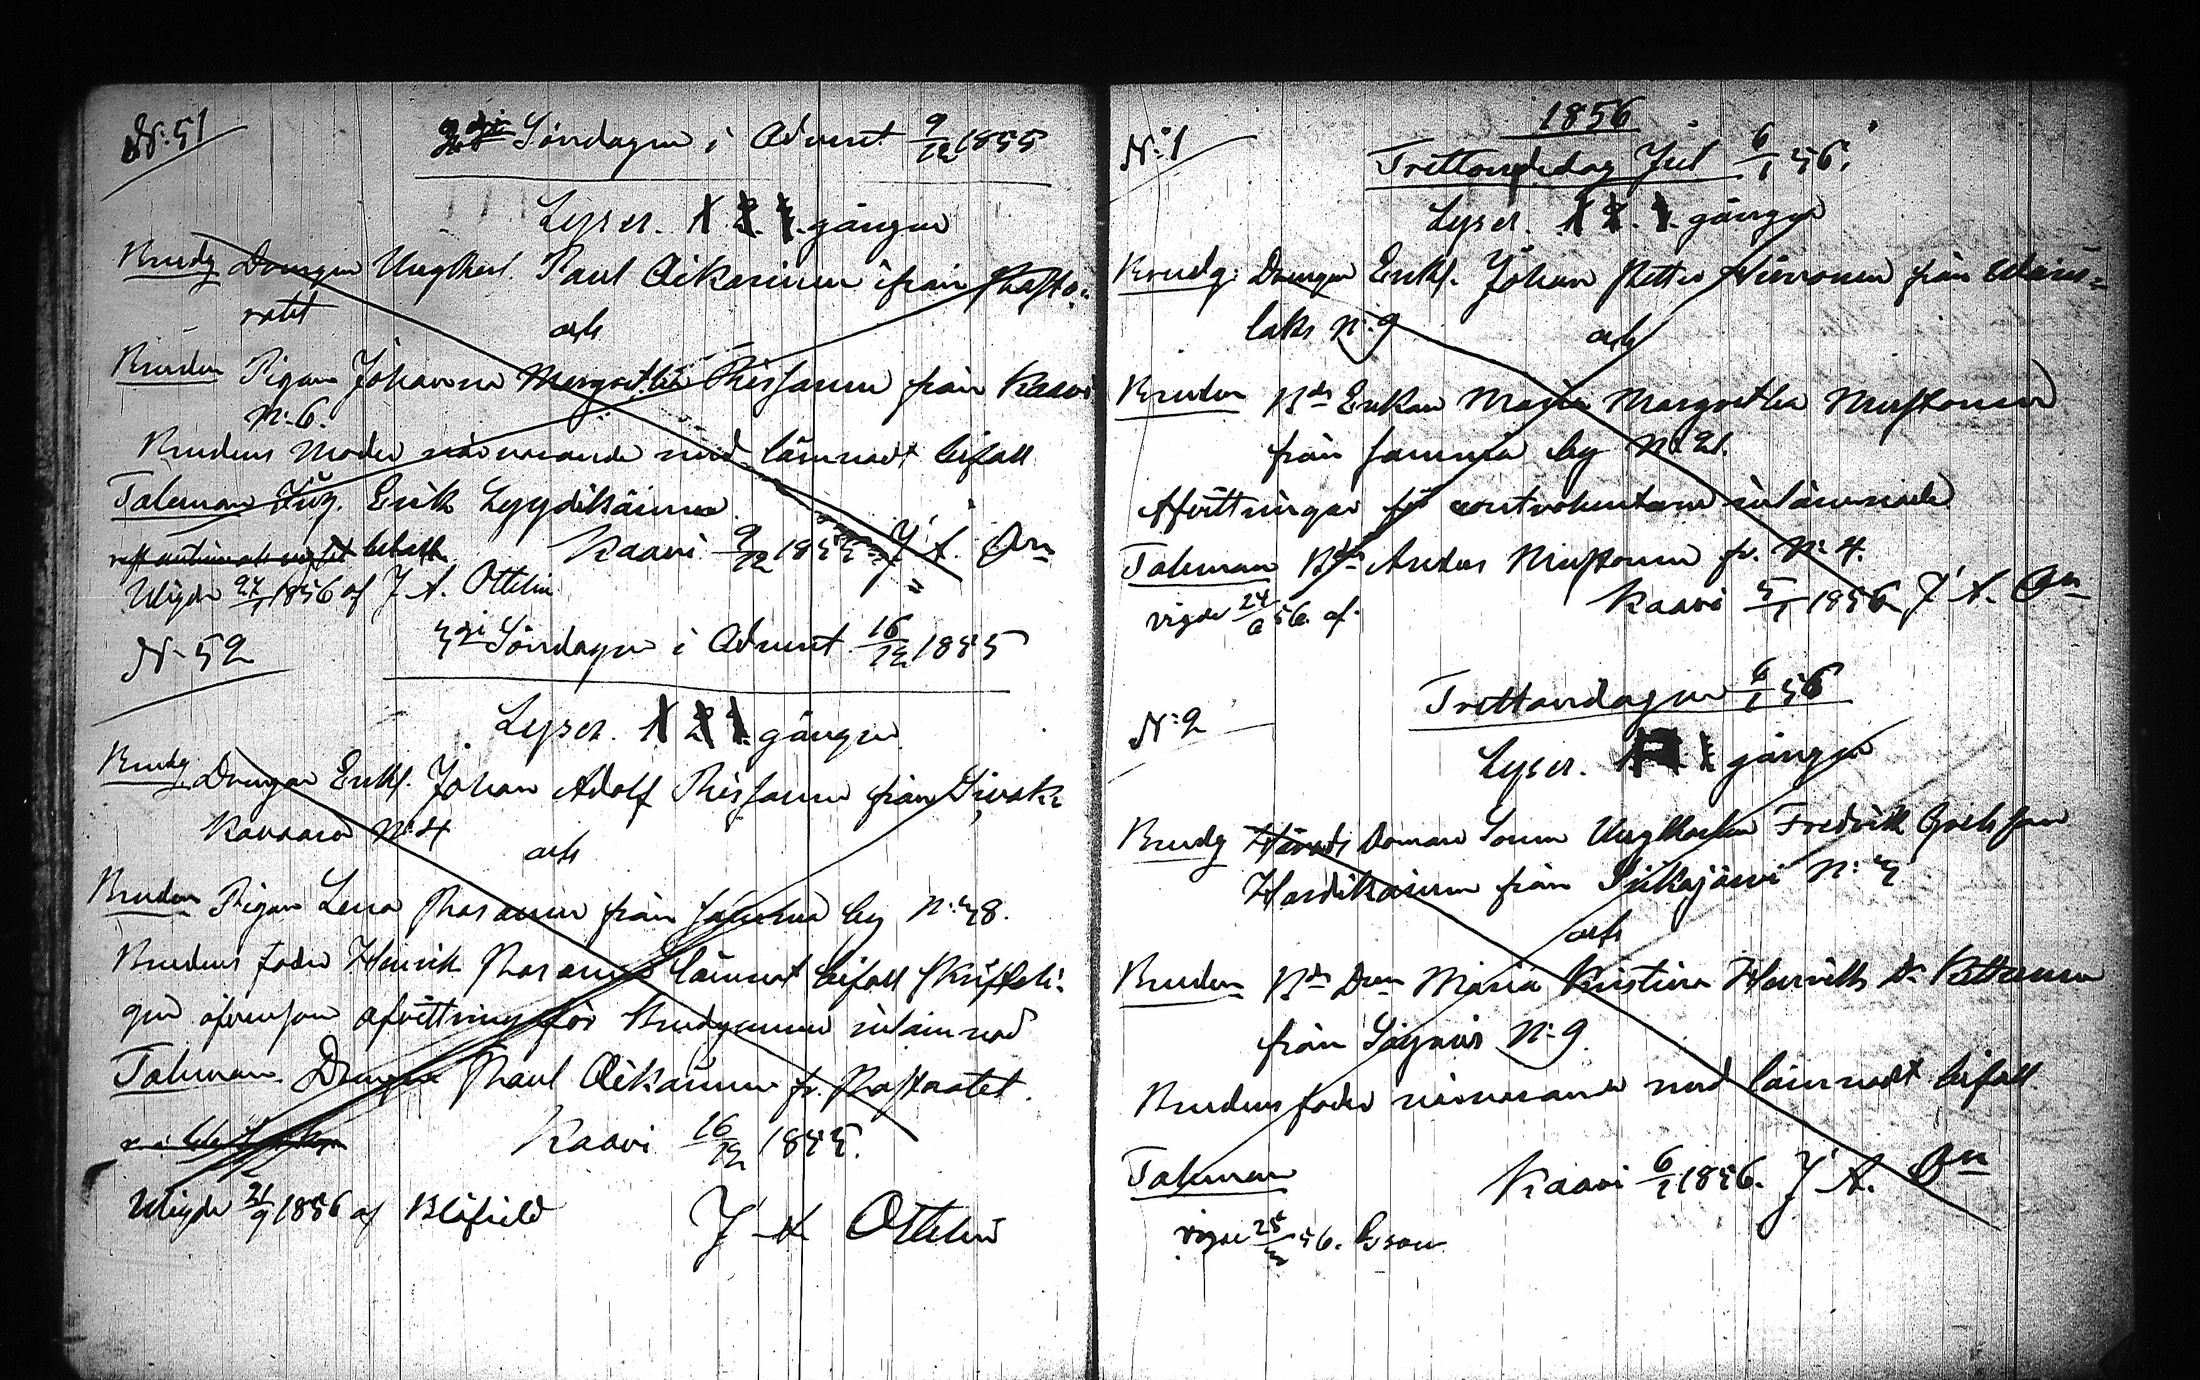 N:51
2dje Söndagen i Advent 9/12 1855
Lyser. 1 2. 3. gången
Brudg Drengen Ungkarl. Paul Oikarinen ifrån Prosto-
ratet
och
Bruden Pigan Johanna Margretha Rissanen från Kaavi
N:6.
Brudens Moder närvarande med lämnadt bifall
Taleman Lyydikäinen Erik
Kaavi 9/12 1855 J. A. On
Wigde 27/1 1856 af J. A. Ottelin
N:52
3dje Söndagen i Advent 16/12 1855
Lyser. 1 2 3. gången
Brudg Drengen Enkl. Johan Adolf Rissanen från Siwak-
kavaara N:4
och
Bruden Pigan Lena Rasanen från samma by N:38.
Brudens fader Henrik Rasanen lämnat bifall skriftli-
gen äfvensom afvittring för Brudgummen inlämnad
Taleman. Drengen Paul Oikarinen fr. Prostratet.
Kaavi 16/12 1855.
Wigde /1 1856 af Blåfield
J A Ottelin
1856
N:1
Trettondedag Jul 6/1 56.
Lyser. 1 2. 3. gången
Brudg. Drengen Enkl. Johan Petter från
laks N:9
och
Bruden Bds Enkan Maria Margretha Mustonen
från samma by N:21.
Afvittringar för contrahenterne inlämnade
Taleman Bds Anders Mustonen fr. N:4.
Kaavi 5/1 1856 J. A. On
vigde 24/6 56. af.
N:2
Trettondagen 6/1 56
Lyser. gången
Brudg Härads Domare Sonen Ungkarlen Fredrik
Hardikainen från Siikajärvi N:3
och
Bruden Bds Don Maria Kristina Henriks Dr
från N:9.
Brudens fader närvarande med lämnadt bifall.
Taleman
Kaavi 6/1 1856. J. A. On
vigde 25/3 56.